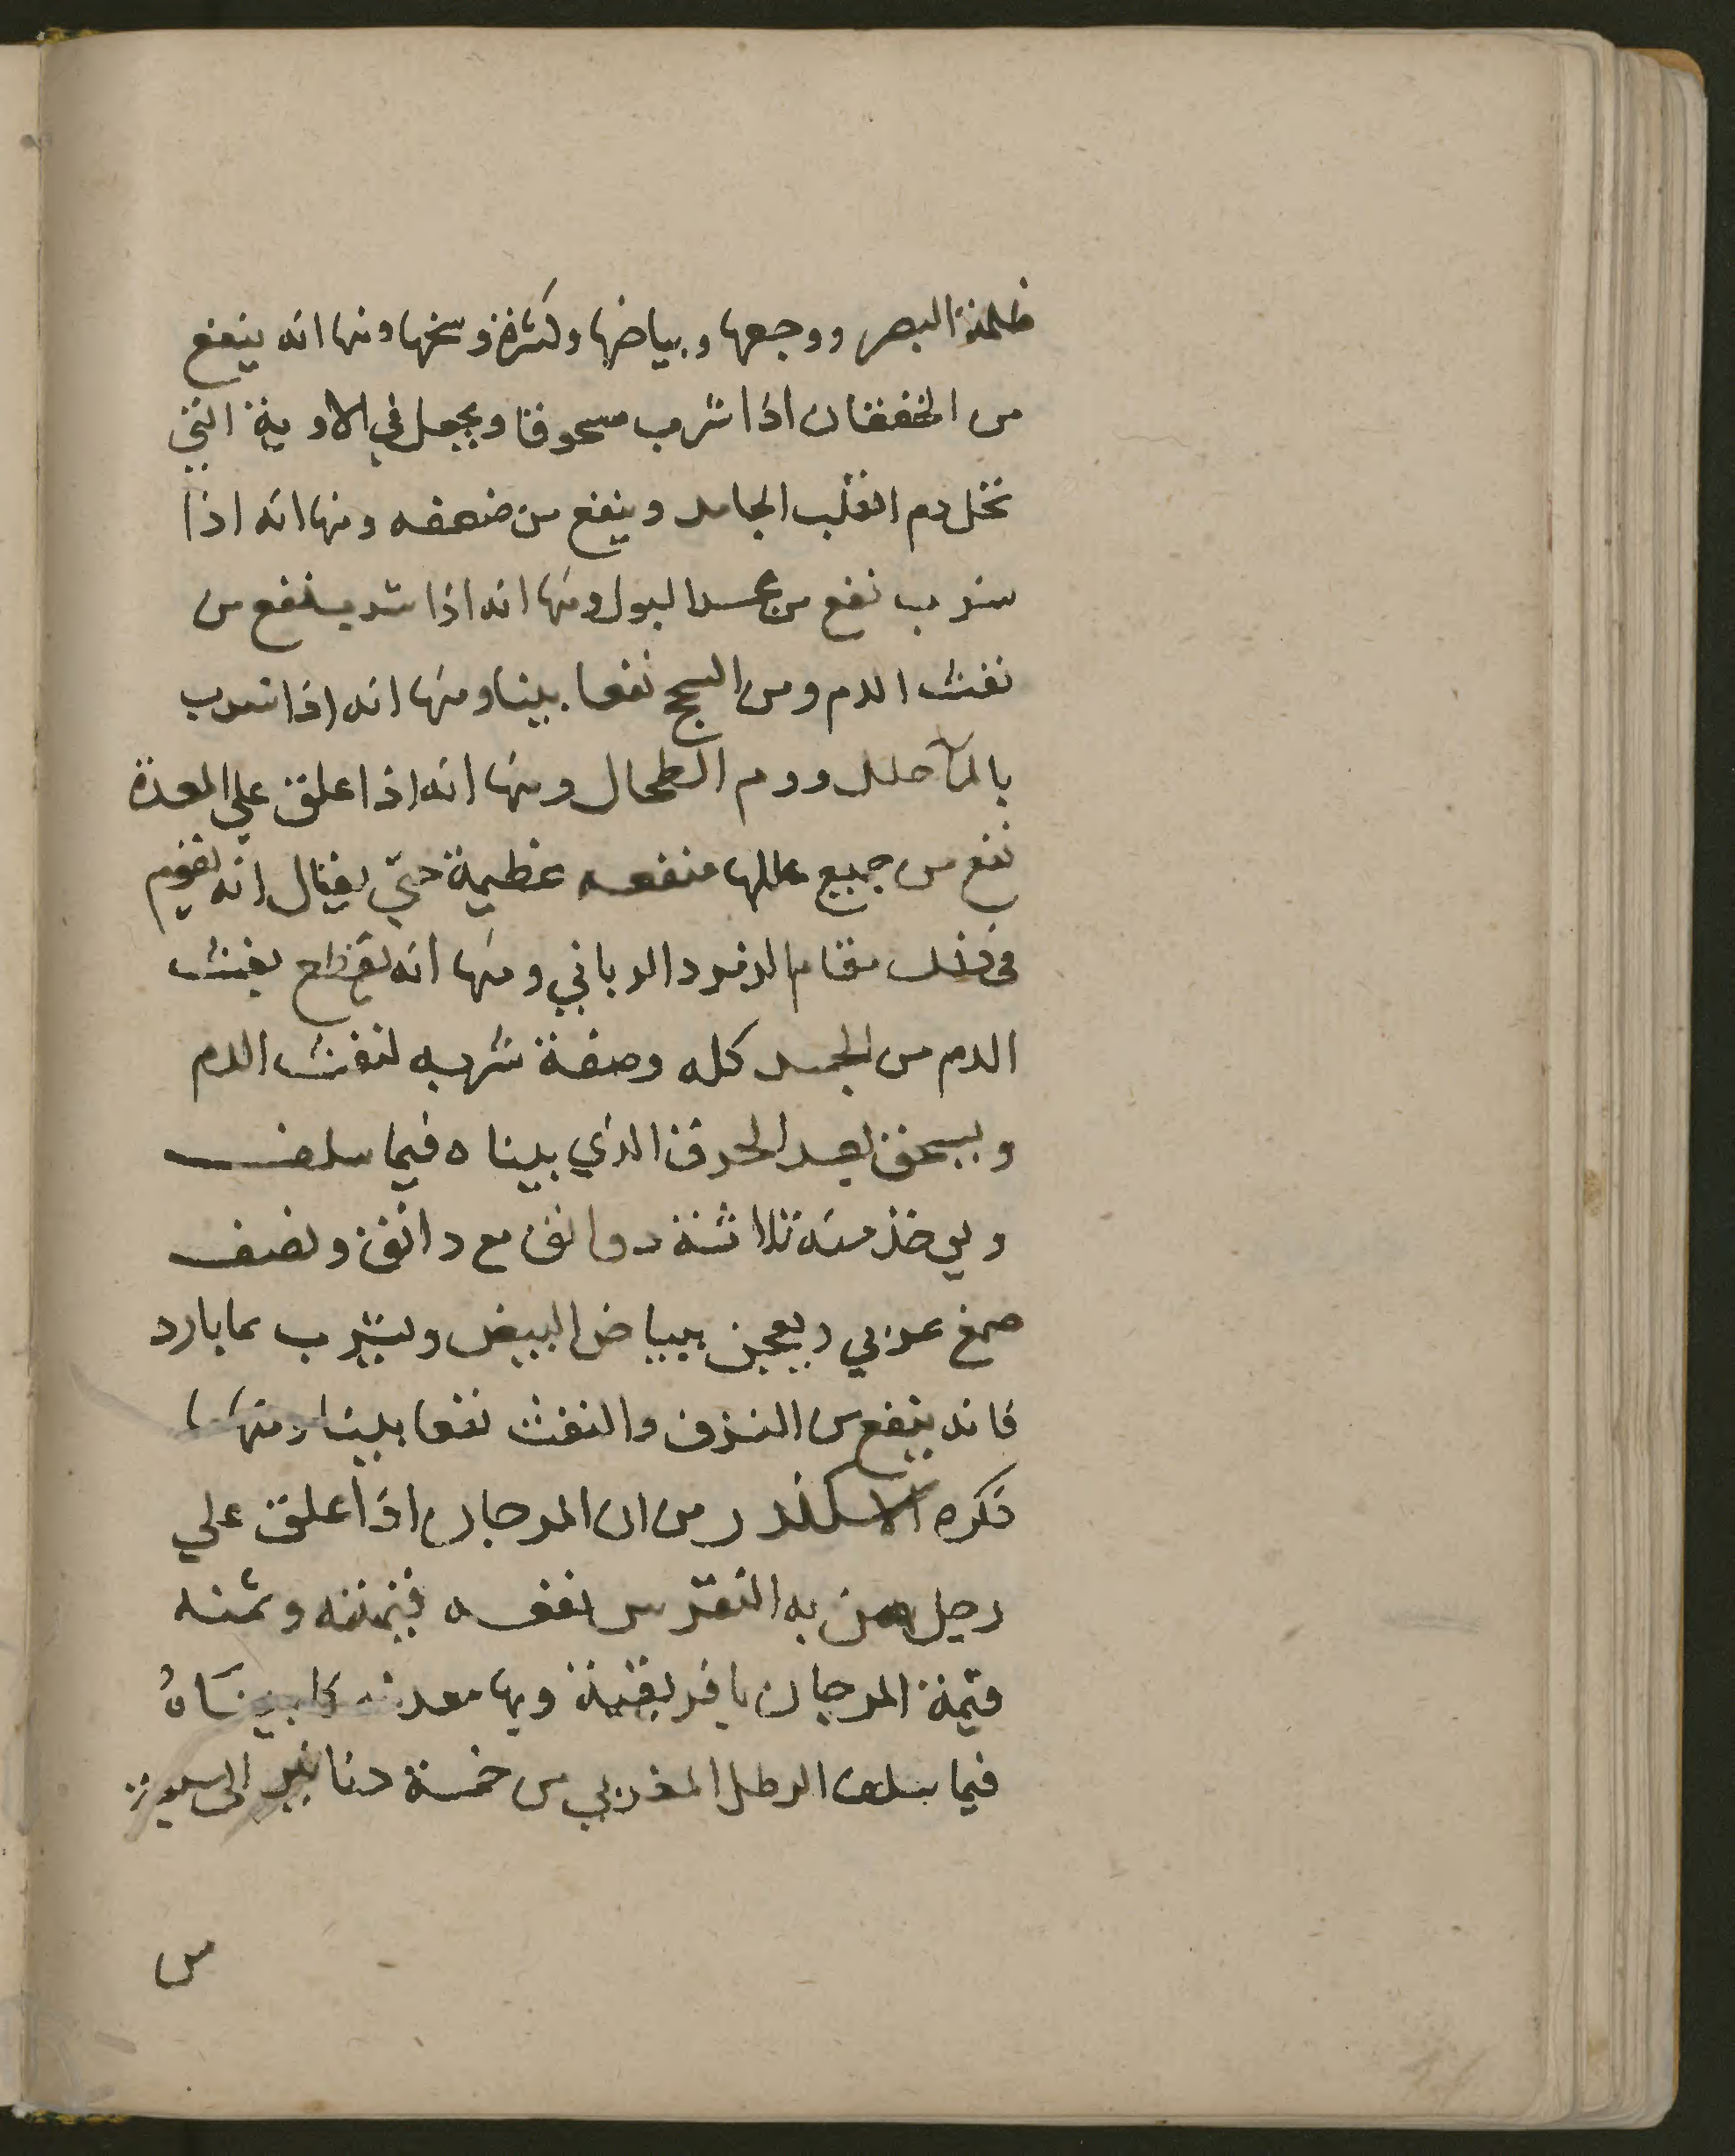 ظلمة البصر ووجعها وبياضها وكثرة وسخها ومنها انه ينفع
من الخفقان اذا شرب مسحوقا ويجعل في الاوية التي
تحل دم القلب الجامد وينفع من ضعفه ومنها انه اذا
شرب نفع من عسر البول ومنها انه اذا شرب ينفع من
نفث الدم ومن السحج نفعا بينا ومنها انه اذا شرب
بالمآ حلل وورم الطحال ومنها انه اذا علق علي المعدة
نفع من جميع عللها منفعه عظيمة حتي يقال انه يقوم
في ذلك مقام الزمرد الذبابي ومنها انه يقطع نفث
الدم من الجسد كله وصفة شربه لنفث الدم
ويسحق بعد الحرق الذي بيناه فيما سلف
ويوخذ منه ثلاثة دوانق مع دانق ونصف
صمغ عربي ويعجن ببياض البيض ويشرب بما بارد
فانه ينفع من النزف والنفث نفعا بينا ومنها ما
ذكره الاسكندر من ان المرجان اذا علق علي
رجل من به النقرس نفعه قيمته وثمنه
قيمة المرجان بافريقية وبها معدنه كما بيناهُ
فيما سلف الرطل المغربي من خمسة دنانير الى سبعة
من